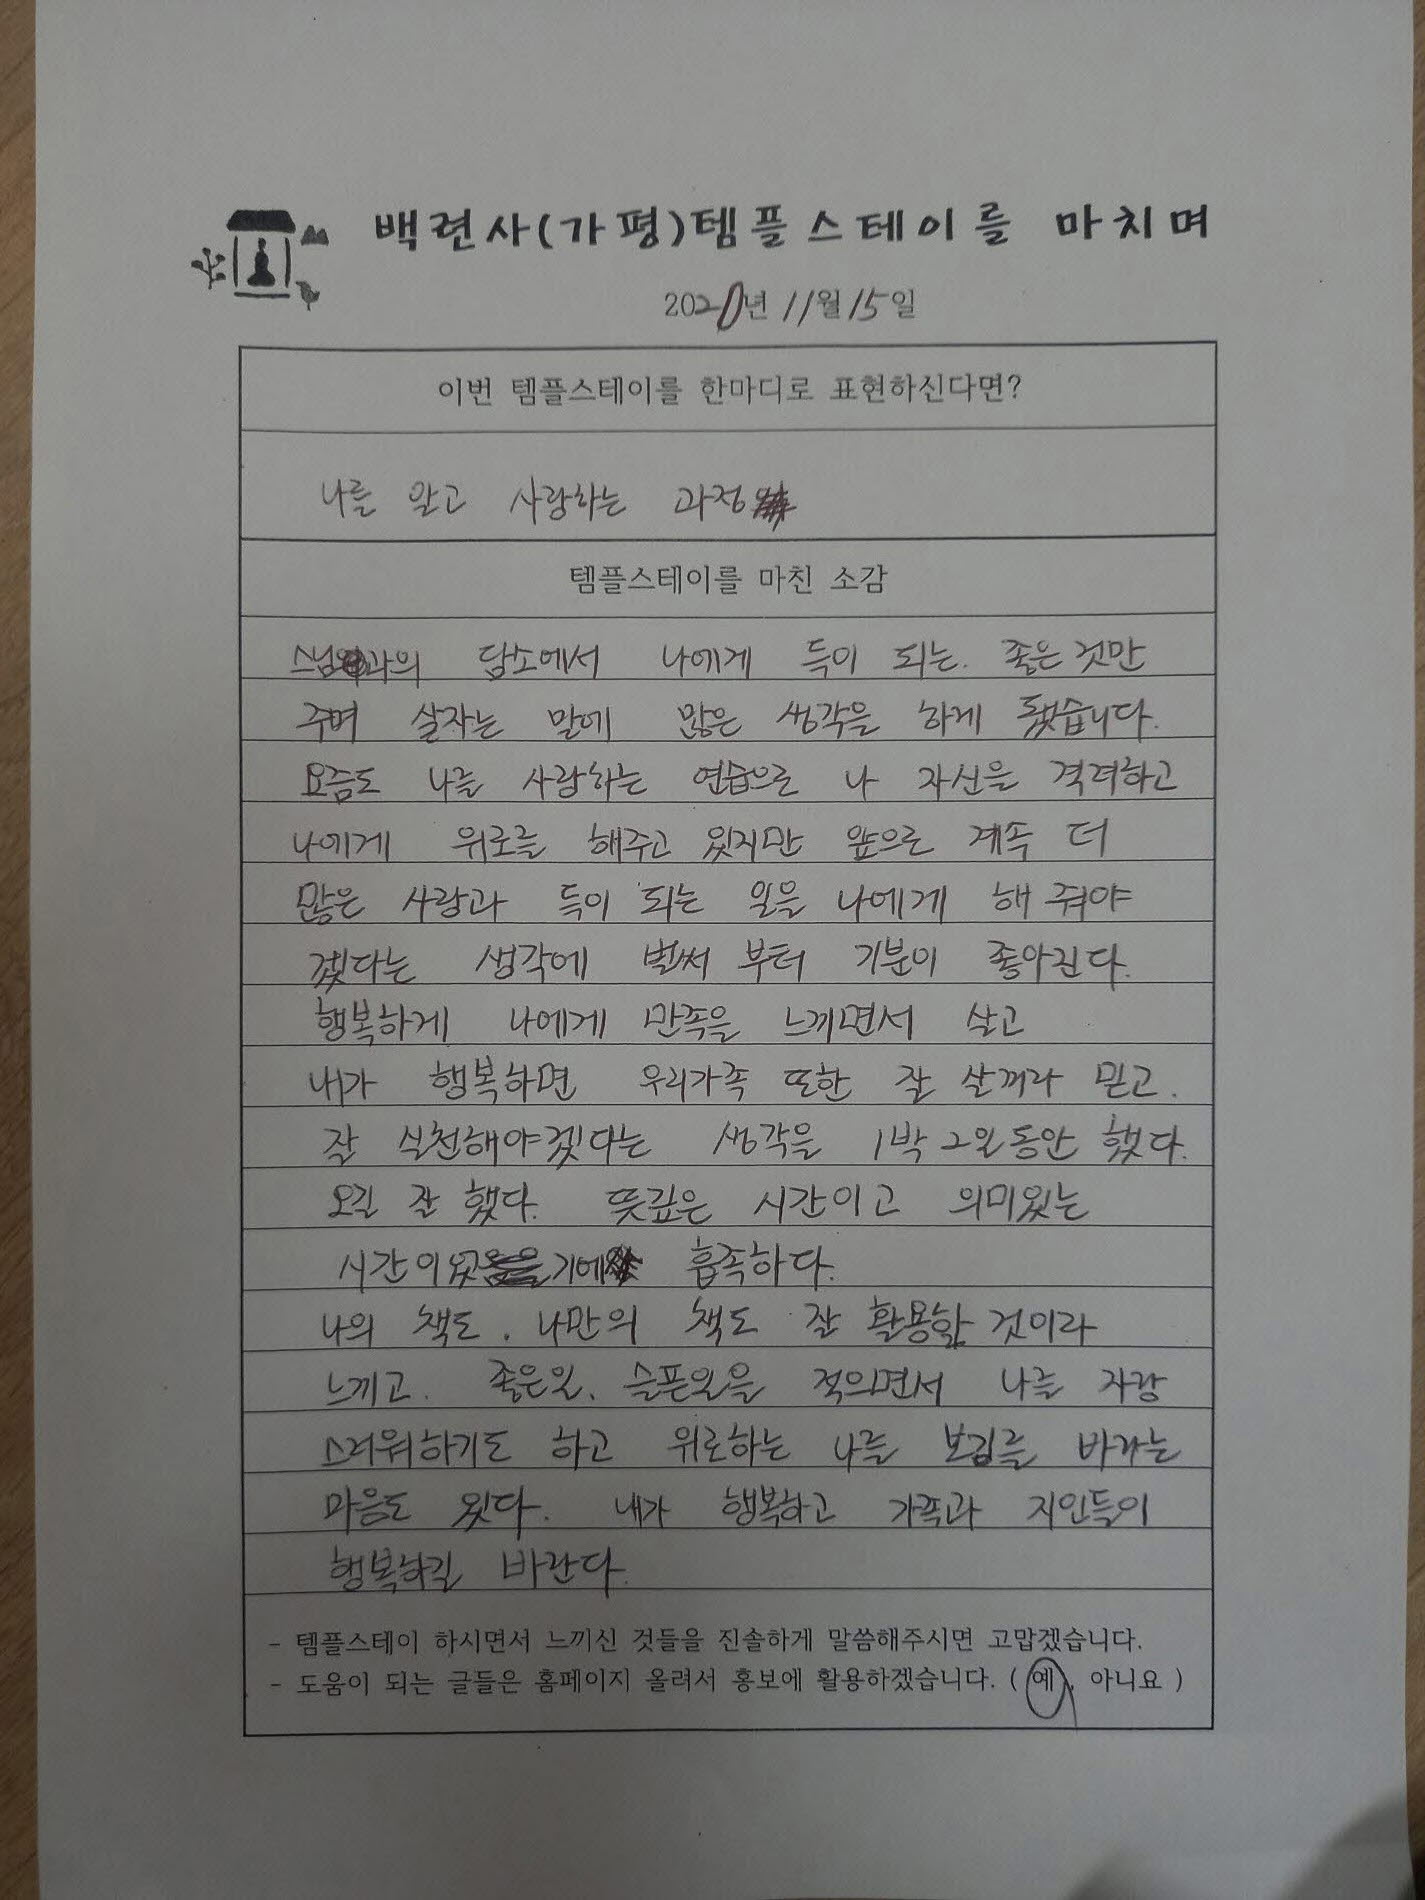 백련사(가평)템플스테이를 마치며
2020년 11월 15일
이번 템플스테이를 한마디로 표현하신다면?
나를 알고 사랑하는 과정
템플스테이를 마친 소감
스님과의 담소에서 나에게 득이 되는. 좋은 것만
주며 살자는 말에 많은 생각을 하게 됐습니다.
요즘도 나를 사랑하는 연습으로 나 자신을 격려하고
나에게 위로를 해주고 있지만 앞으로 계속 더
많은 사랑과 득이 되는 일을 나에게 해 줘야
겠다는 생각에 벌써 부터 기분이 좋아진다.
행복하게 나에게 만족을 느끼면서 살고
내가 행복하면 우리가족 또한 잘 살꺼라 믿고.
잘 실천해야겠다는 생각을 1박 2일동안 했다.
오길 잘 했다. 뜻깊은 시간이고 의미있는
시간이였기에 흡족하다.
나의 책도. 나만의 책도 잘 활용할 것이라
느끼고. 좋은일. 슬픈일을 적의면서 나를 자랑
스러워하기도 하고 위로하는 나를 보길를 바라는
마음도 있다. 내가 행복하고 가족과 지인들이
행복하길 바란다.
- 템플스테이 하시면서 느끼신 것들을 진솔하게 말씀해주시면 고맙겠습니다.
- 도움이 되는 글들은 홈페이지 올려서 홍보에 활용하겠습니다. ( 예, 아니요 )